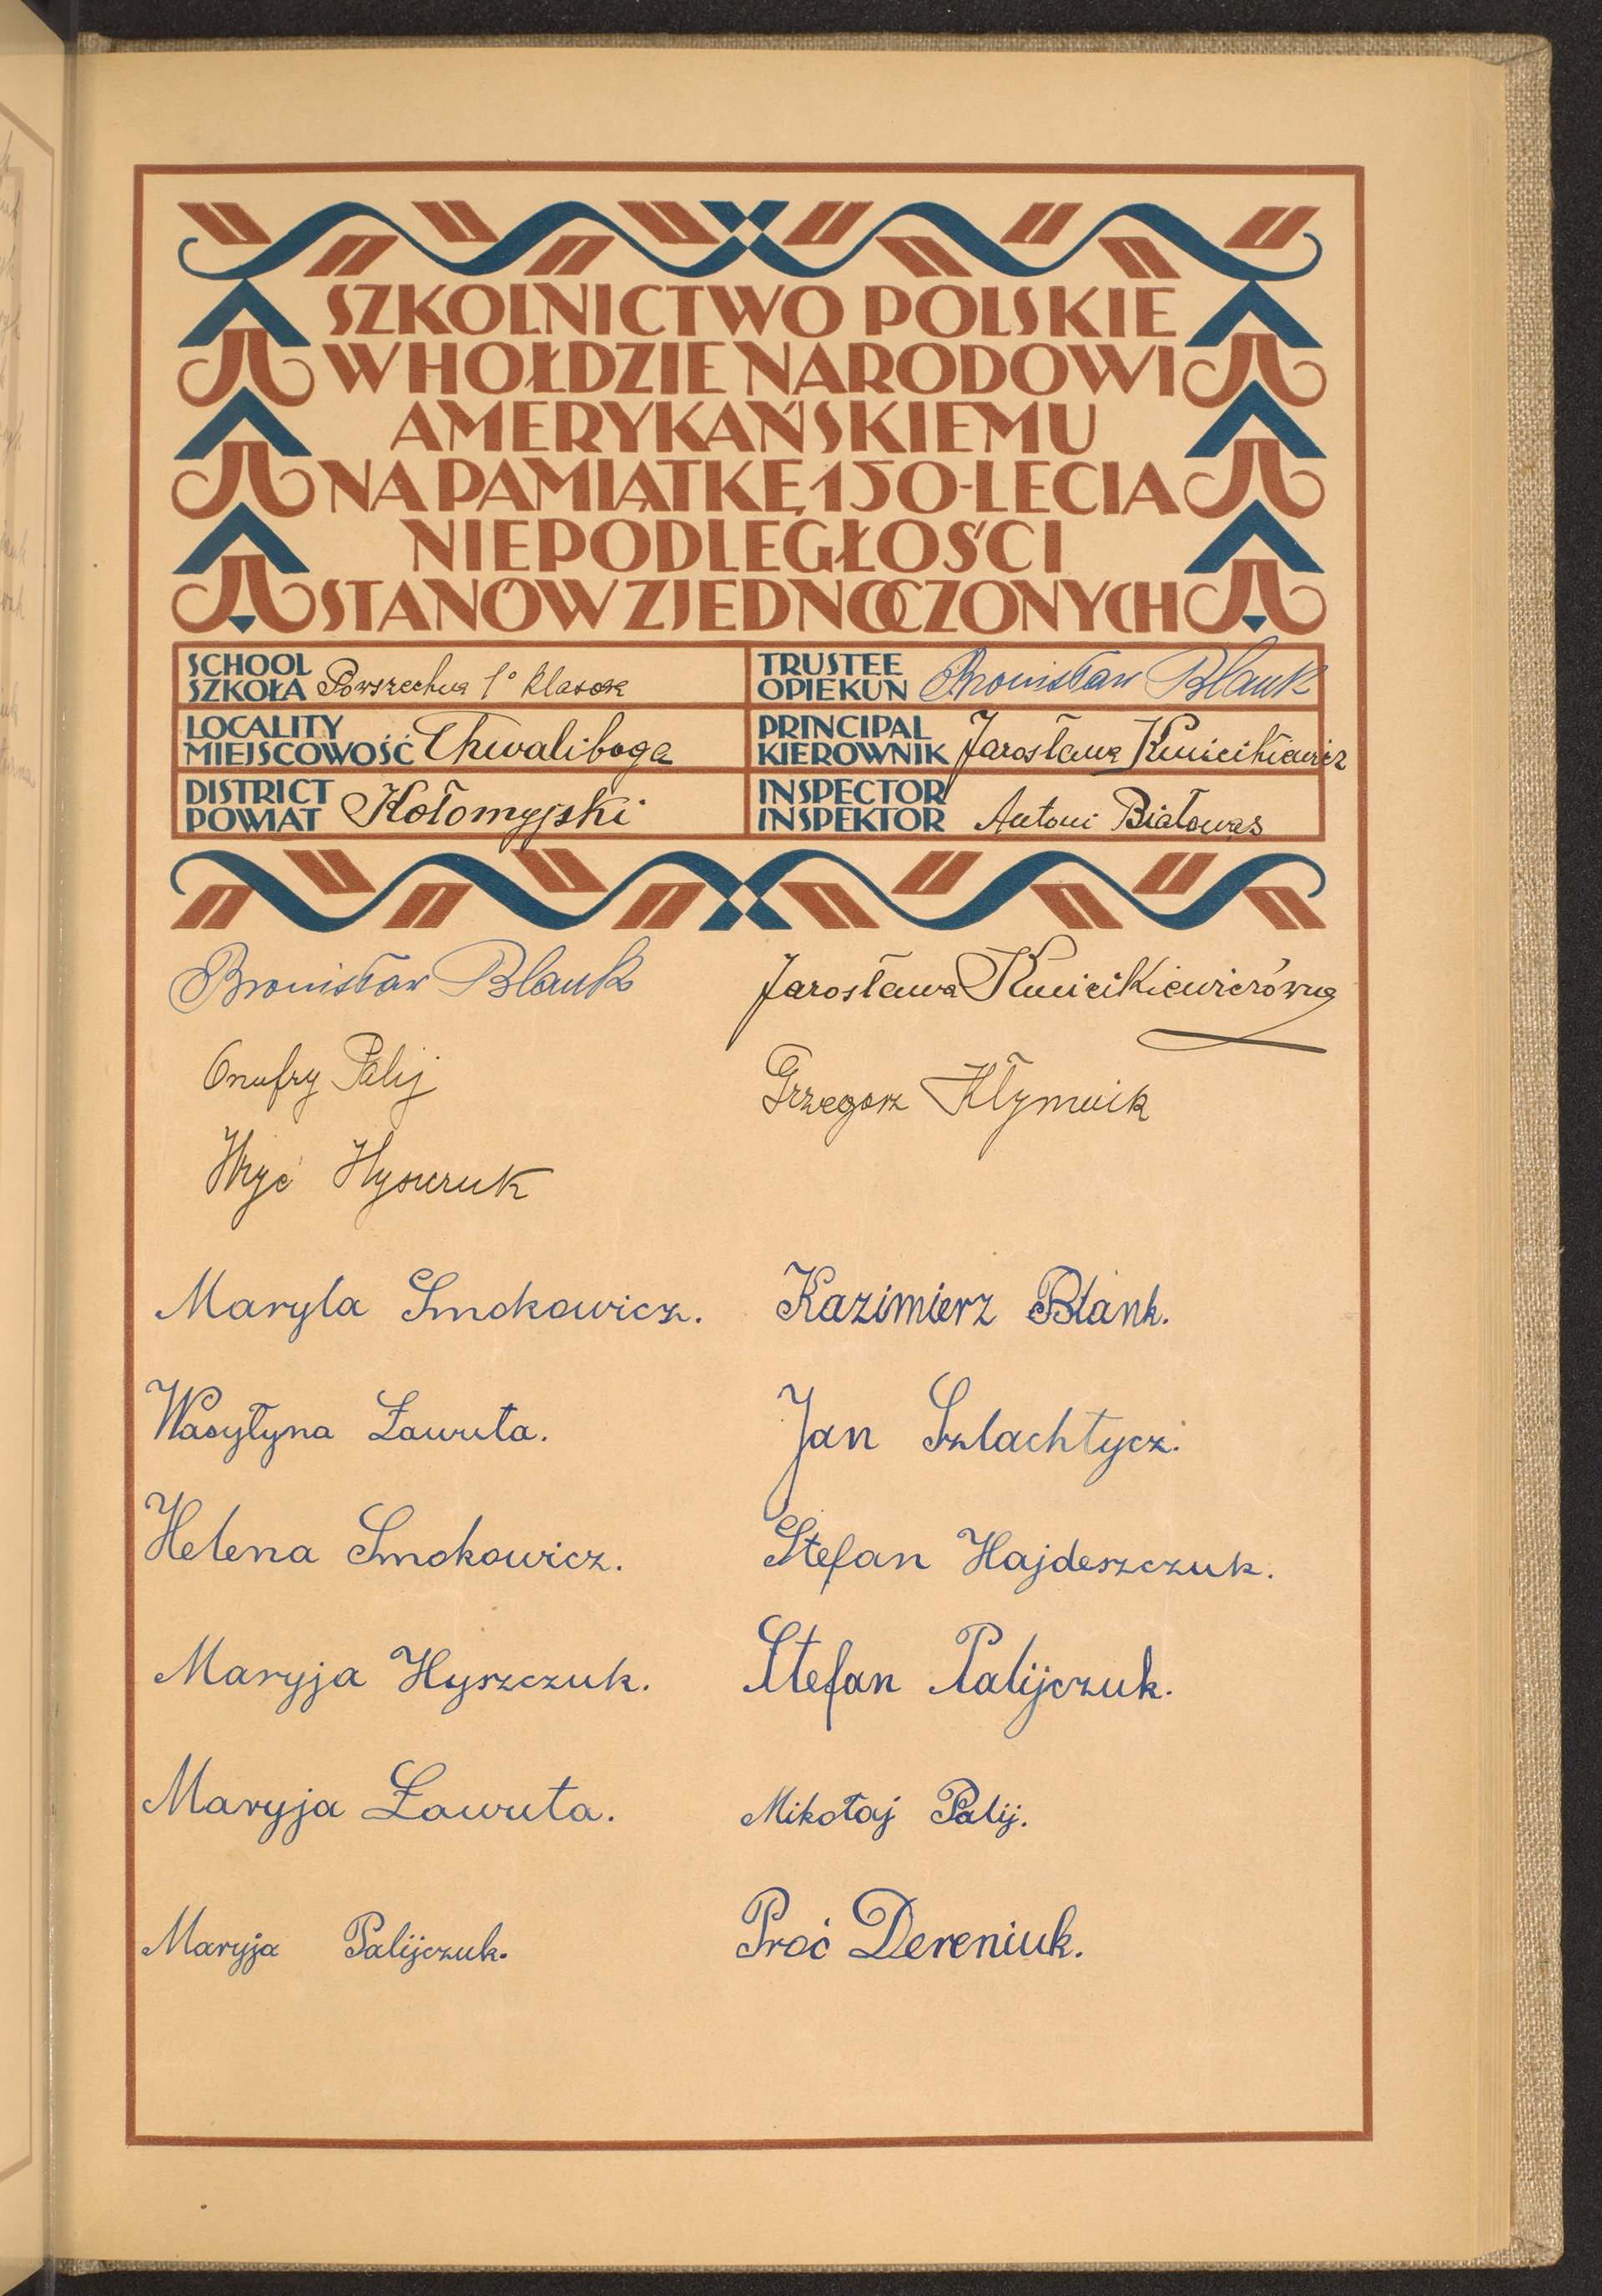 SZKOLNICTWO POLSKIE
W HOŁDZIE NARODOWI
AMERYKAŃSKIEMU
NA PAMIĄTKĘ 150-LECIA
NIEPODLEGŁOŚCI
STANÓW ZJEDNOCZONYCH
SCHOOL
SZKOŁA Powszechna 1º klasowa
LOCALITY
MIEJSCOWOŚĆ Chwaliboga
DISTRICT
POWIAT Kołomyjski
TRUSTEE
OPIEKUN Bronisław Blauk
PRINCIPAL
KIEROWNIK Jarosława
INSPECTOR
INSPEKTOR Antoni Białowąs
Bronisław Blank Jarosława
Onufry Palij Grzegorz Kłymuik
Hryć
Maryla Smokowicz. Kazimierz Blank.
Wasyłyna Ławuta. Jan Szlachtycz.
Helena Smokowicz. Stefan Hajdeszczuk.
Maryja Hyszczuk. Stefan Palijczuk.
Maryja Ławuta. Mikołaj Palij.
Maryja Palijczuk. Proć Dereniuk.